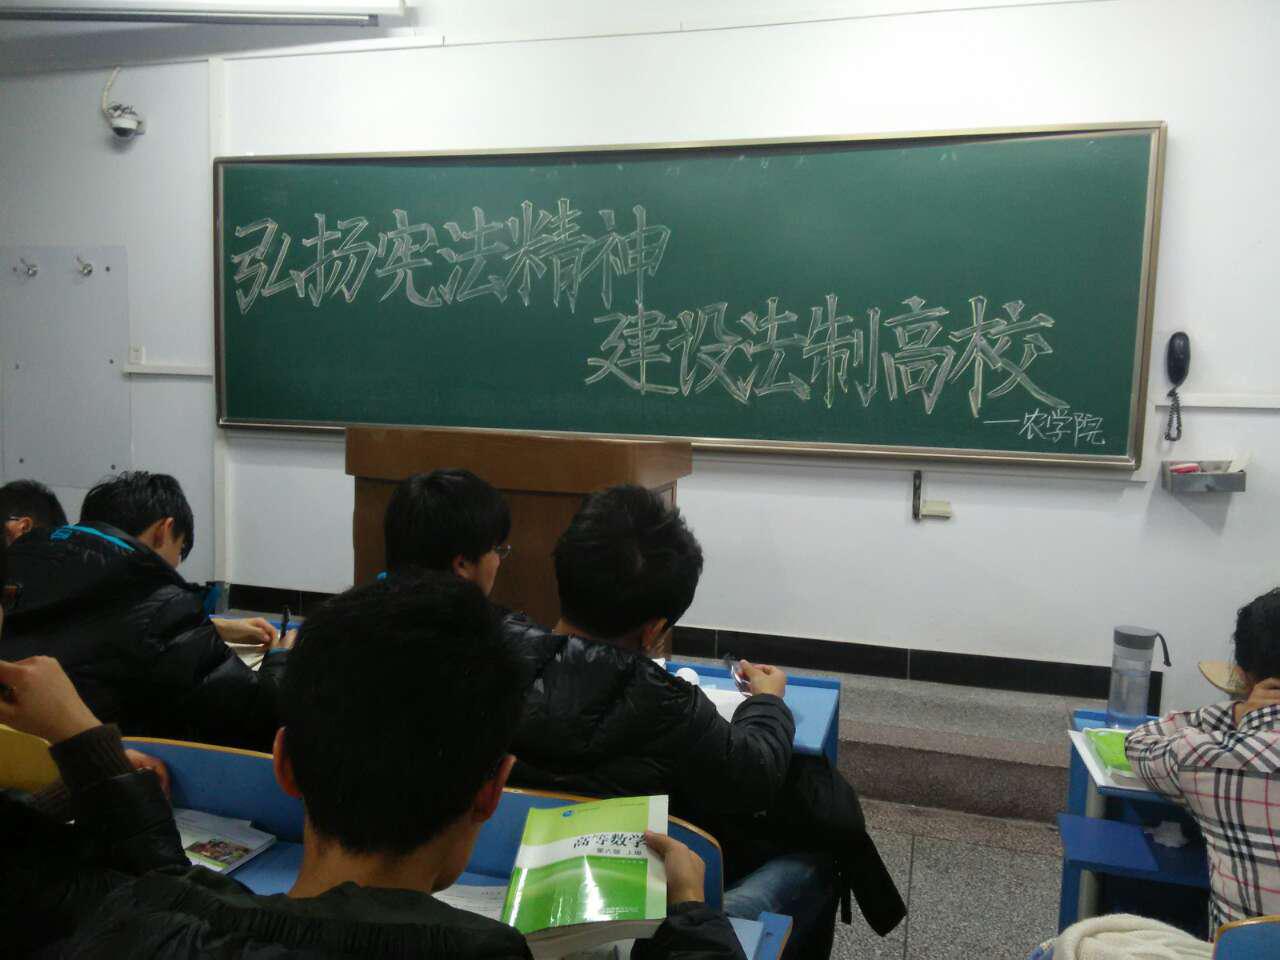 弘扬宪法精神
建设法制高校
—农学院
高等数学
第六版 上册